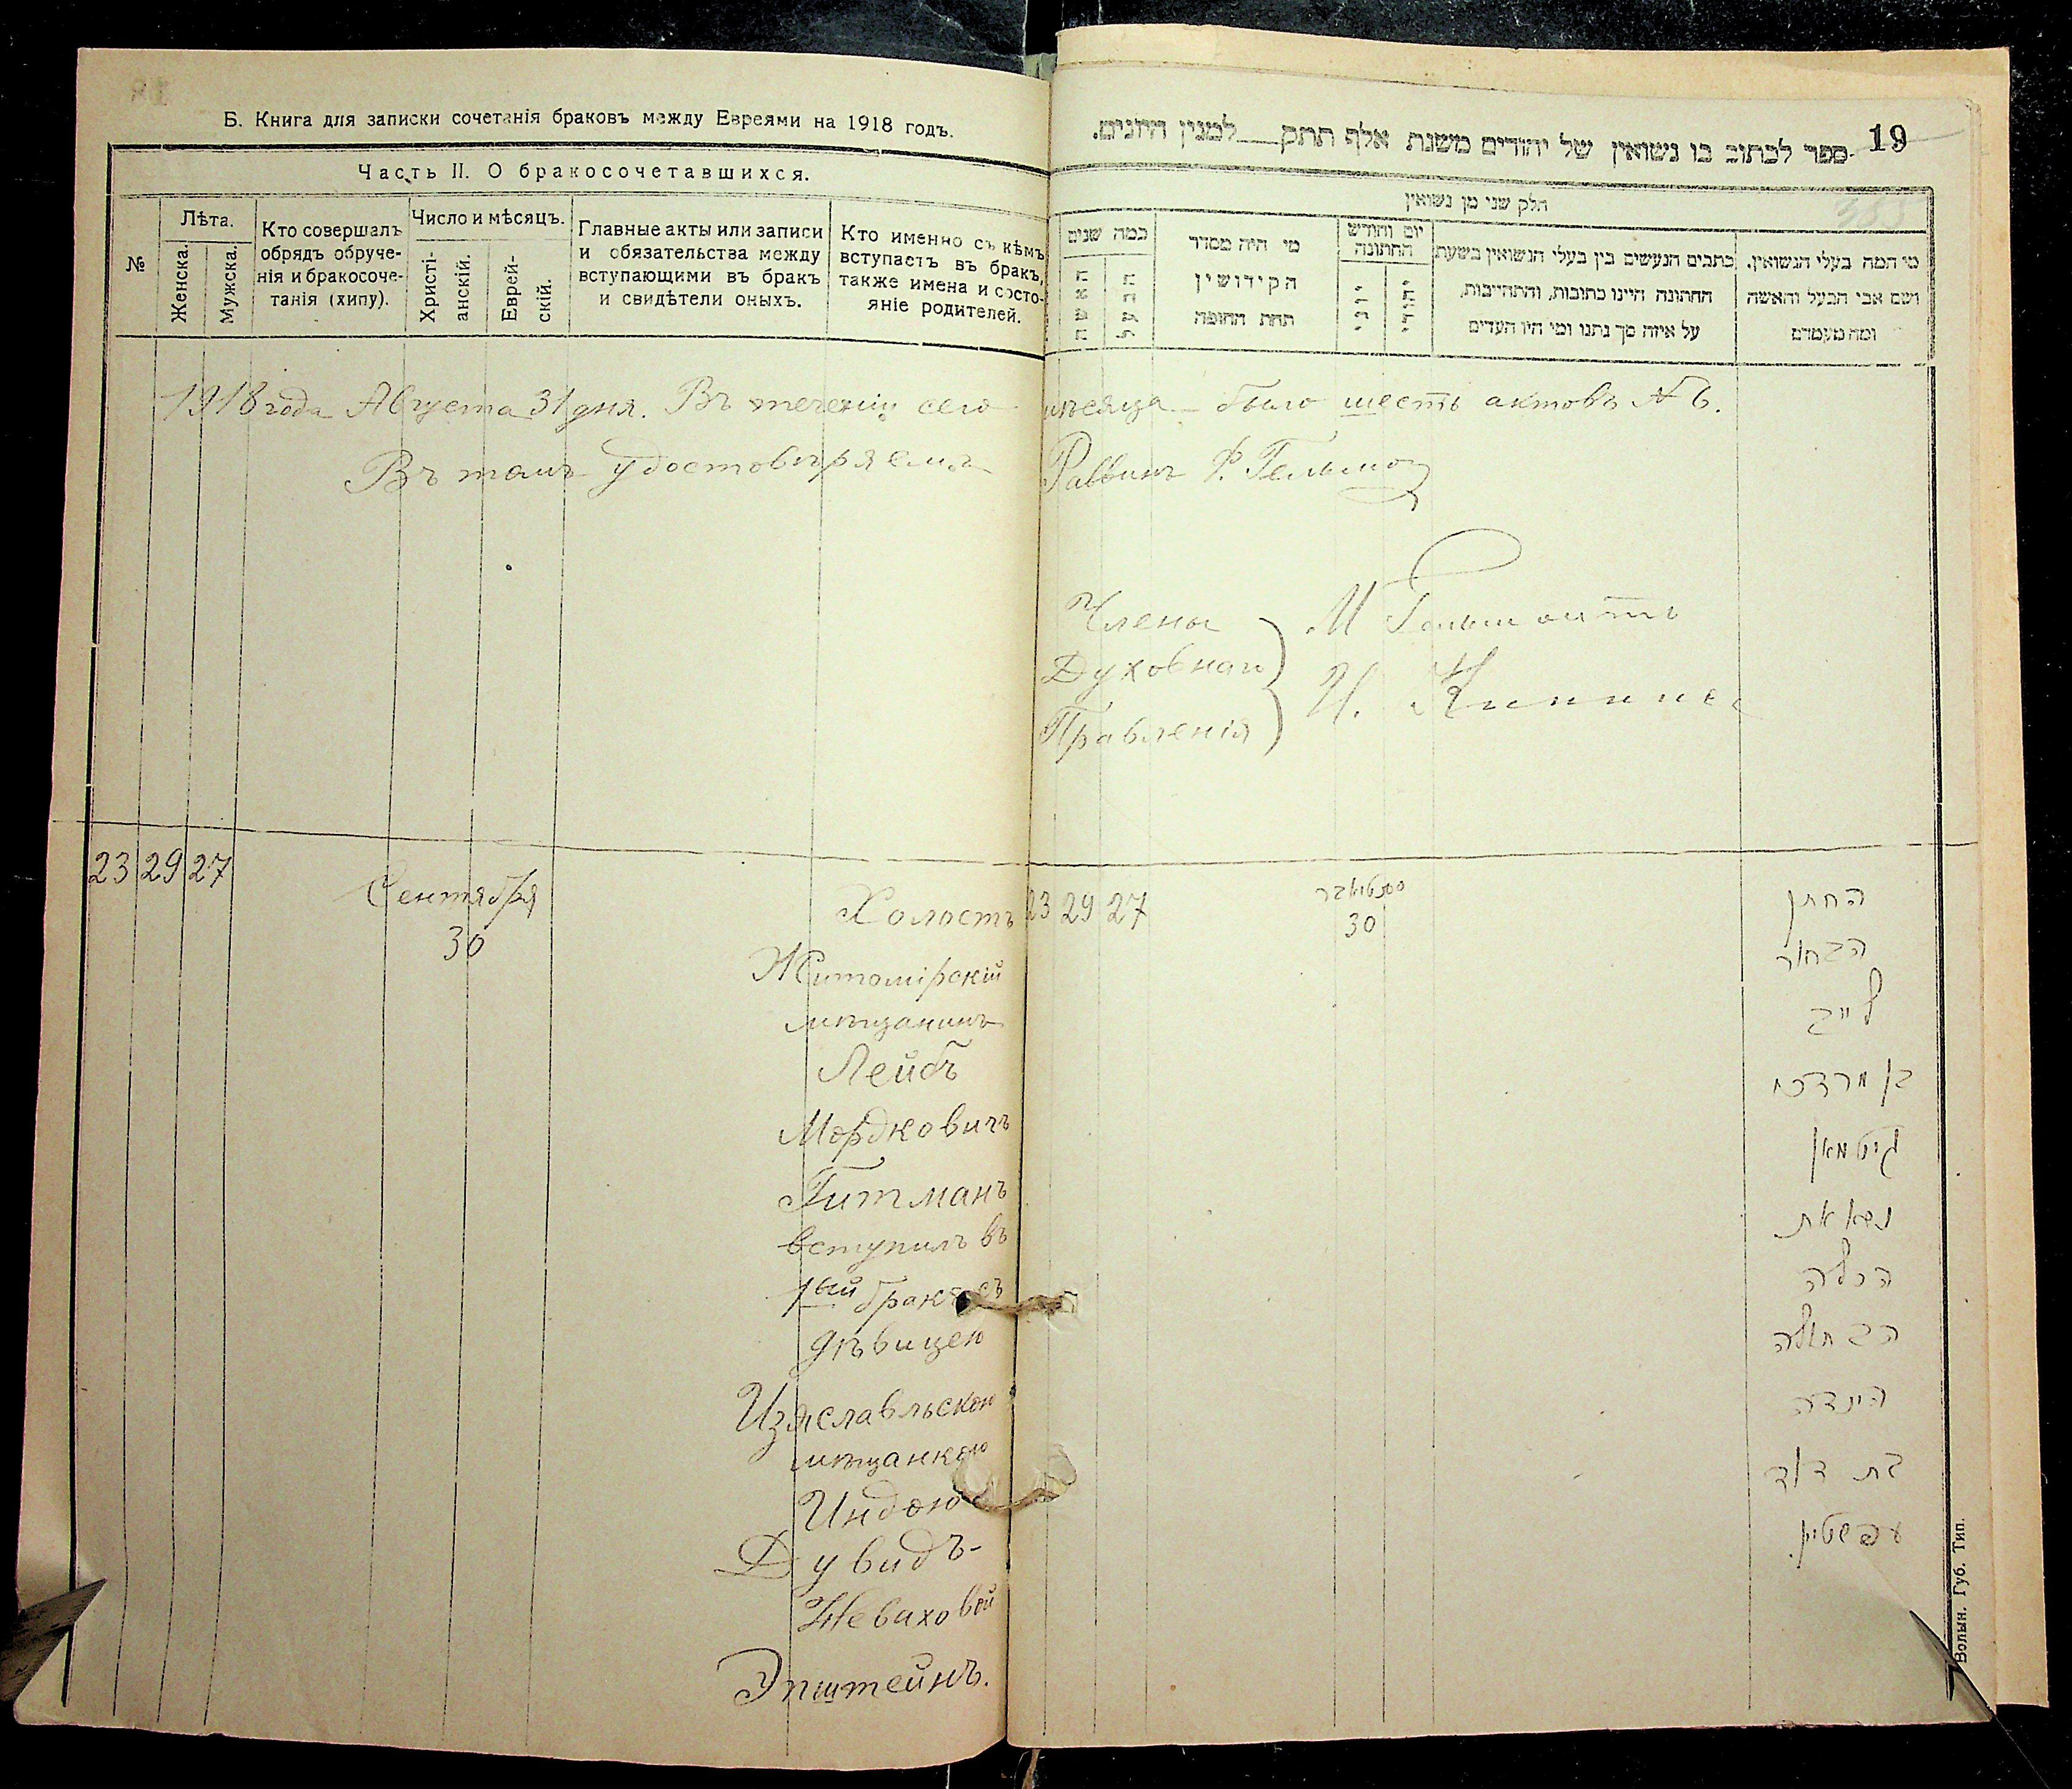 Б. Книга для записки сочетанія браковъ между Евреями на 1918 годъ.
Часть II. О бракосочетавшихся.
№
Лѣта.
Женска.
Мужска.
Кто совершалъ
обрядъ обруче-
нія и бракосоче-
танія (хипу).
Число и мѣсяцъ.
Христі-
анскій.
Еврей-
скій.
Главные акты или записи
и обязательства между
вступающими въ бракъ
и свидѣтели оныхъ.
Кто именно съ кѣмъ
вступаетъ въ бракъ,
также имена и состо-
яніе родителей.
19
ספר לכתוב בו נשואין של יהודים משנת אלף תתק למנין היונים.
חלק שני מן נשואין
כמה שנים
האשה
הבעל
מי היה מסדר
הקידושין
תחת החופה
יום וחודש
החתונה
יוני
יהודי
כתבים הנעשים בין בעלי הנשואין בשעת
החתונה היינו כתובות, והתחייבות,
על איזה סך נתנו ומי היו העדים
מי המה בעלי הנשואין,
ושם אבי הבעל והאשה
ומה מעמדם
1918 года Августа 31 дня. Въ теченіи сего мѣсяца было шесть актовъ № 6.
Въ томъ удостовѣряемъ Раввинъ
Члены
Духовнаго
Правленія
М
И.
23 29 27
Сентября
30
Холостъ
Житомірскій
мѣщанинъ
Лейбъ
Мордковичъ
Гитманъ
вступилъ въ
1ый бракъ съ
дѣвицею
Изяславльскою
мѣщанкою
Индою
Дувидъ-
Эпштейнъ.
23 29 27
סעפטיאבר
30
החתן
הבחור
לייב
בן מרדכי
גיטמאן
נשא את
הכלה
הבתולה
הינדה
בת דוד
עפשטיין.
Волын. Губ. Тип.